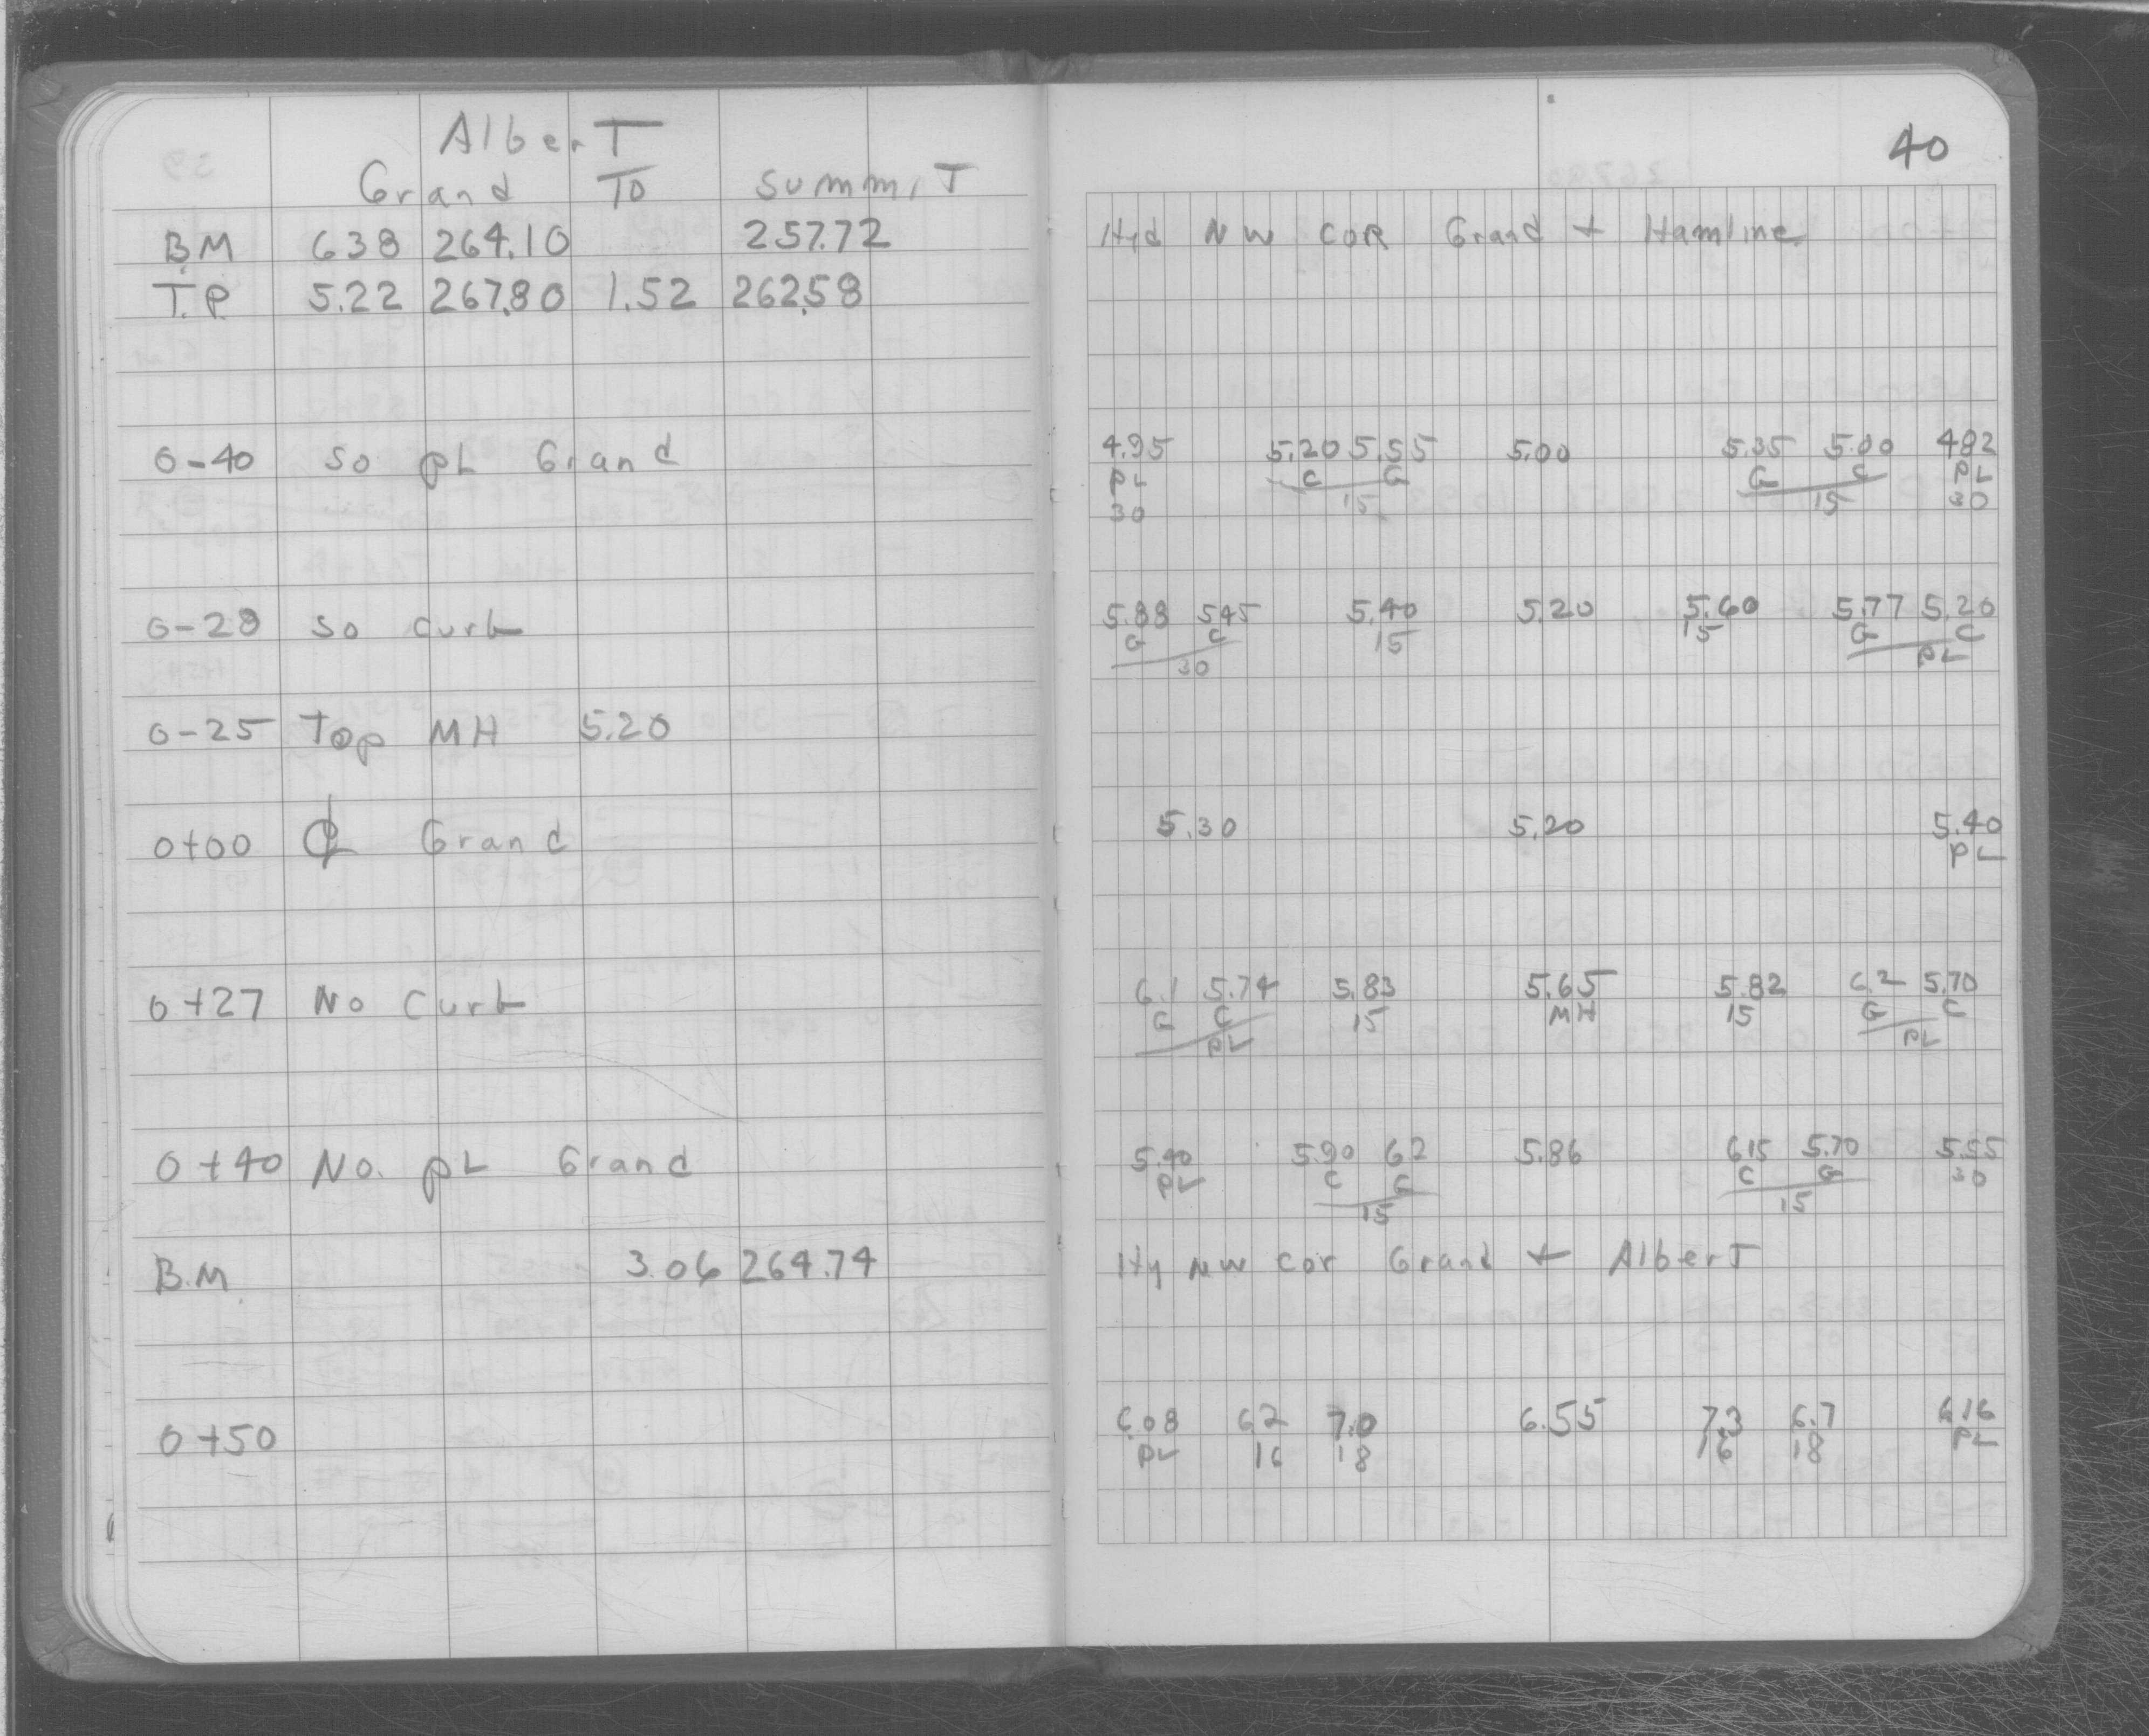 Albert
40
Grand To Summit
B.M 6.38 264.10 257.72 Hyd NW COR Grand + Hamline
T.P. 5.22 267.80 1.52 262.58
0-40 So PL Grand 4.95 5.20 5.55 5.00 5.35 5.00 4.82
PL C G G C PL
30 15 15 30
0-28 So curb 5.88 5.45 5.40 5.20 5.60 5.77 5.20
G C 15 15 G C
30 PL
0-25 Top MH 5.20
0+00 ℄ Grand 5.30 5.20 5.40
PL
0+27 No Curb 6.1 5.74 5.83 5.65 5.82 6.2 5.70
G C 15 MH 15 G C
PL PL
0+40 No. PL Grand 5.40 5.90 6.2 5.86 6.15 5.70 5.55
PL C G C G 30
15 15
B.M. 3.06 264.74 Hy NW Cor Grand + Albert
0+50 6.08 6.2 7.0 6.55 7.3 6.7 6.16
PL 16 18 16 18 PL